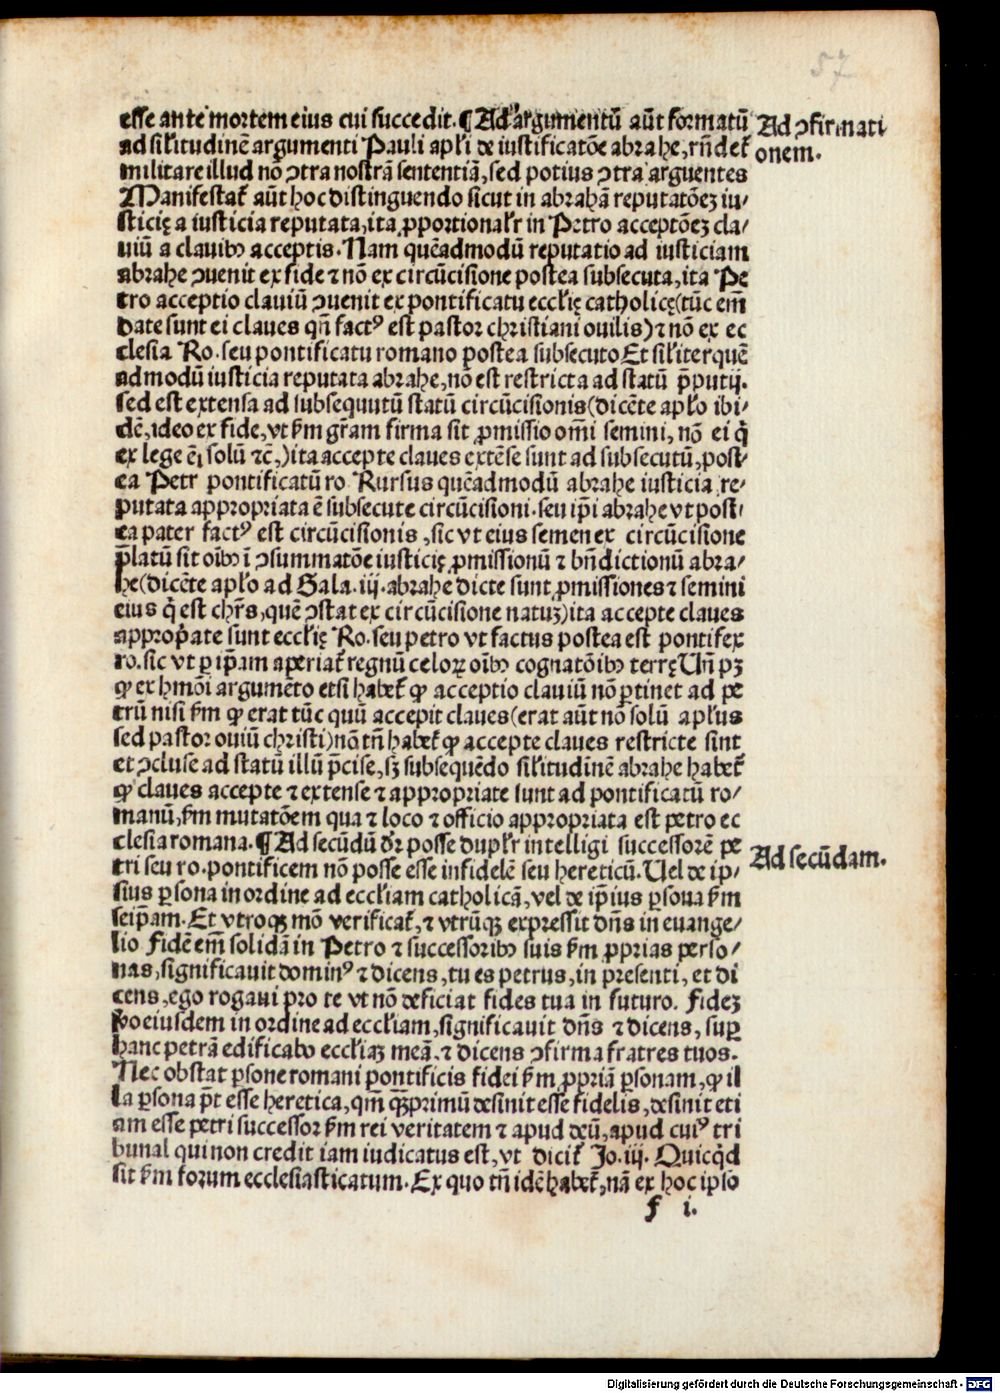 57
esse ante mortem eius cui succedit. ¶ Ad argumentū aūt formatū
Ad ↄfirmati
onem.
ad silitudinē argumenti Pauli apli de iustificatōe abrahe, rn̄det̄
militare illud nō ↄtra nostrā sententiā, sed potius ↄtra arguentes
Manifestat̄ aūt hoc distinguendo sicut in abrahā reputatōeꝫ iu/
sticię a iusticia reputata, ita ꝓportionalr in Petro acceptōeꝫ cla/
uiū a clauibꝰ acceptis. Nam quēadmodū reputatio ad iusticiam
abrahe ↄuenit ex fide ⁊ nō ex circūcisione postea subsecuta, ita Pe
tro acceptio clauiū ↄuenit ex pontificatu ecclię catholicę (tūc em̄
date sunt ei claues qn̄ factꝰ est pastor christiani ouilis) ⁊ nō ex ec
clesia Ro. seu pontificatu romano postea subsecuto Et siliter quē
admodū iusticia reputata abrahe, nō est restricta ad statū p̄putij.
sed est extensa ad subsequutū statū circūcisionis (dicēte aplo ibi/
dē, ideo ex fide, vt ẜm gr̄am firma sit ꝓmissio om̄i semini, nō ei q̇
ex lege ē, solū ⁊c̄,) ita accepte claues extēse sunt ad subsecutū, post/
ea Petr pontificatū ro Rursus quēadmodū abrahe iusticia re/
putata appropriata ē subsecute circūcisioni. seu ip̄i abrahe vt post/
ea pater factꝰ est circūcisionis, sic vt eius semen ex circūcisione
p̄latū sit oībꝰ ī ↄsummatōe iusticię ꝓmissionū ⁊ bn̄dictionū abra/
he (dicēte aplo ad Gala. iij. abrahe dicte sunt ꝓmissiones ⁊ semini
eius q̇ est chr̄s, quē ↄstat ex circūcisione natuꝫ) ita accepte claues
appropͥate sunt ecclię Ro. seu petro vt factus postea est pontifex
ro. sic vt ꝑ ip̄am aperiat̄ regnū celoꝝ oībꝰ cognatōibꝰ terrę Un̄ pꝫ
ꝙ ex hmōi argumēto etsi habet̄ ꝙ acceptio clauiū nō ꝑtinet ad pe
trū nisi ẜm ꝙ erat tūc quū accepit claues (erat aūt nō solū aplus
sed pastor ouiū christi) nō tn̄ habet̄ ꝙ accepte claues restricte sint
et ↄcluse ad statū illū p̄cise, sꝫ subsequēdo silitudinē abrahe habet̄
ꝙ claues accepte ⁊ extense ⁊ appropriate sunt ad pontificatū ro/
manū, ẜm mutatōem qua ⁊ loco ⁊ officio appropriata est petro ec
clesia romana. ¶ Ad secūdū dr̄ posse duplr intelligi successorē pe
Ad secūdam.
tri seu ro. pontificem nō posse esse infidelē seu hereticū. Uel de ip/
sius ꝑsona in ordine ad eccliam catholicā, vel de ip̄ius ꝑsona ẜm
seip̄am. Et vtroqꝫ mō verificat̄, ⁊ vtrūqꝫ expressit dn̄s in euange/
lio Fidē em̄ solidā in Petro ⁊ successoribꝰ suis ẜm ꝓprias perso/
nas, significauit dominꝰ ⁊ dicens, tu es petrus, in presenti, et di
cens, ego rogaui pro te vt nō deficiat fides tua in futuro. Fideꝫ
ꝟo eiusdem in ordine ad eccliam, significauit dn̄s ⁊ dicens, suꝑ
hanc petrā edificabo eccliaꝫ meā. ⁊ dicens ↄfirma fratres tuos.
Nec obstat ꝑsone romani pontificis fidei ẜm ꝓpriā ꝑsonam, ꝙ il
la ꝑsona pt̄ esse heretica, qm̄ qꝫprimū desinit esse fidelis, desinit eti
am esse petri successor ẜm rei veritatem ⁊ apud deū, apud cuiꝰ tri
bunal qui non credit iam iudicatus est, vt dicit̄ Jo. iij. Quicqͥd
sit ẜm forum ecclesiasticatum. Ex quo tn̄ idē habet̄, nā ex hoc ipso
f i.
Digitalisierung gefördert durch die Deutsche Forschungsgemeinschaft - DFG